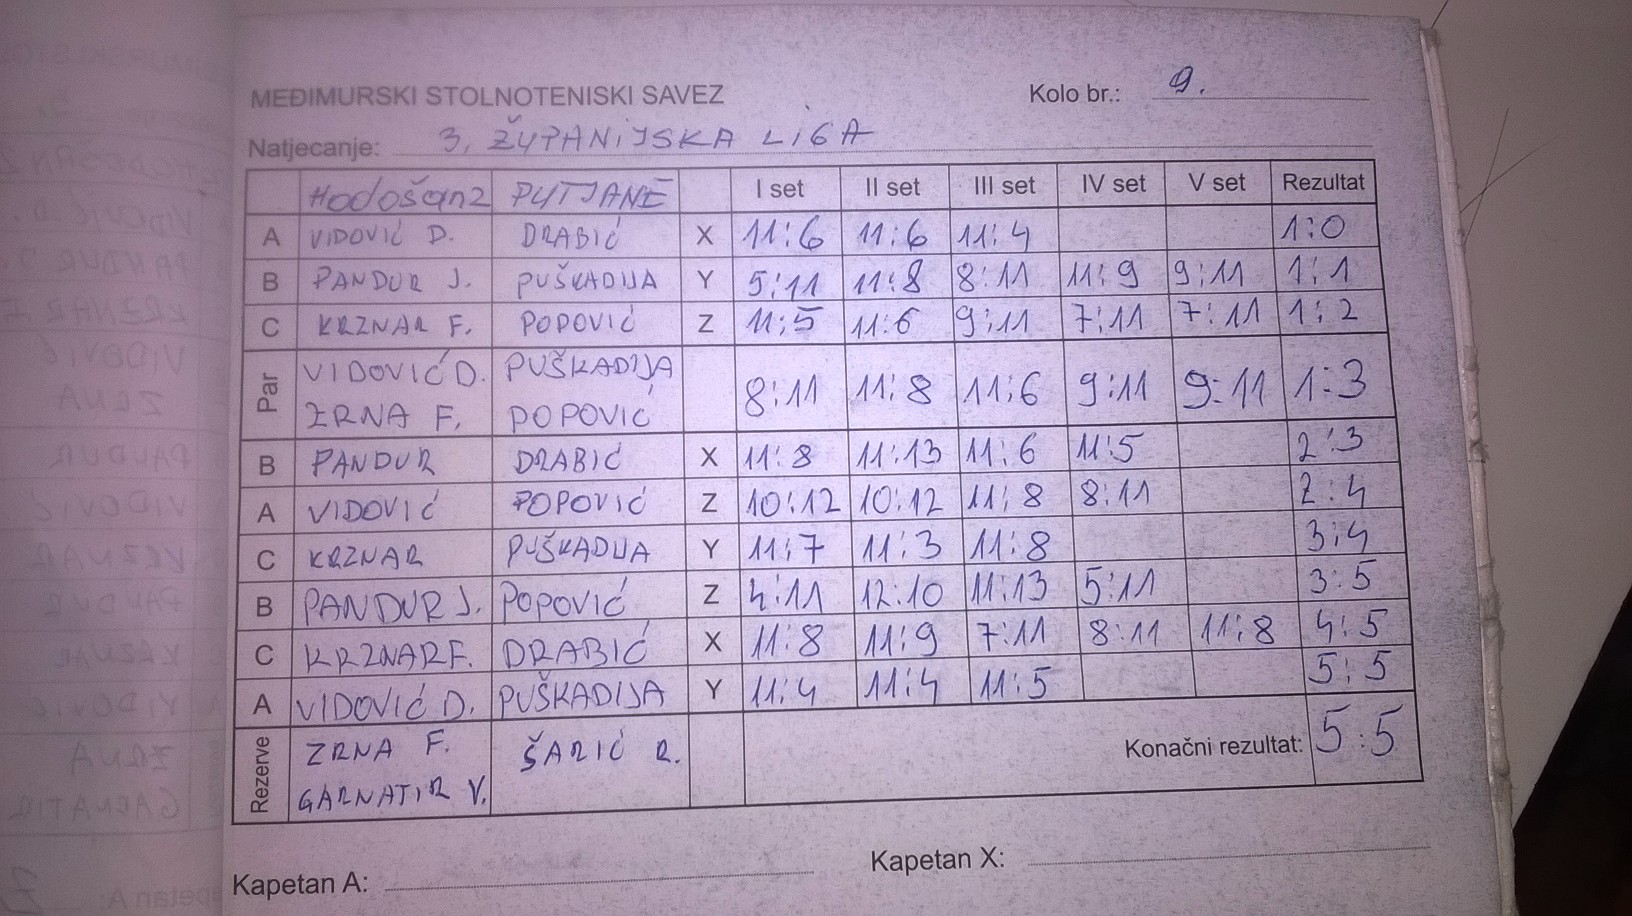 MEĐIMURSKI STOLNOTENISKI SAVEZ
Kolo br.: 9.
Natjecanje: 3. ŽUPANIJSKA LIGA
Hodošan 2 PUTJANE I set II set III set IV set V set Rezultat
A VIDOVIĆ D. DRABIĆ X 11:6 11:6 11:4 1:0
B PANDUR J. PUŠKADIJA Y 5:11 11:8 8:11 11:9 9:11 1:1
C KRZNAR F. POPOVIĆ Z 11:5 11:6 9:11 7:11 7:11 1:2
Par VIDOVIĆ D. PUŠKADIJA 8:11 11:8 11:6 9:11 9:11 1:3
ZRNA F. POPOVIĆ
B PANDUR DRABIĆ X 11:8 11:13 11:6 11:5 2:3
A VIDOVIĆ POPOVIĆ Z 10:12 10:12 11:8 8:11 2:4
C KRZNAR PUŠKADIJA Y 11:7 11:3 11:8 3:4
B PANDUR J. POPOVIĆ Z 4:11 12:10 11:13 5:11 3:5
C KRZNAR F. DRABIĆ X 11:8 11:9 7:11 8:11 11:8 4:5
A VIDOVIĆ D. PUŠKADIJA Y 11:4 11:4 11:5 5:5
Rezerve ZRNA F. ŠARIĆ R. Konačni rezultat: 5:5
GARNATIR V.
Kapetan A: Kapetan X: